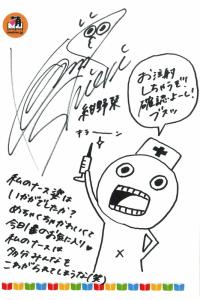 紺野栞
お注射
しちゃうぞ♡
確認よーし!
ブスッ
キラーン
私のナース姿は
いかがでしたか?
めちゃくちゃかわいくて
今日イチのお気に入り♥
私のナースは
多分みんなを
こわがらせてしまうな(笑)